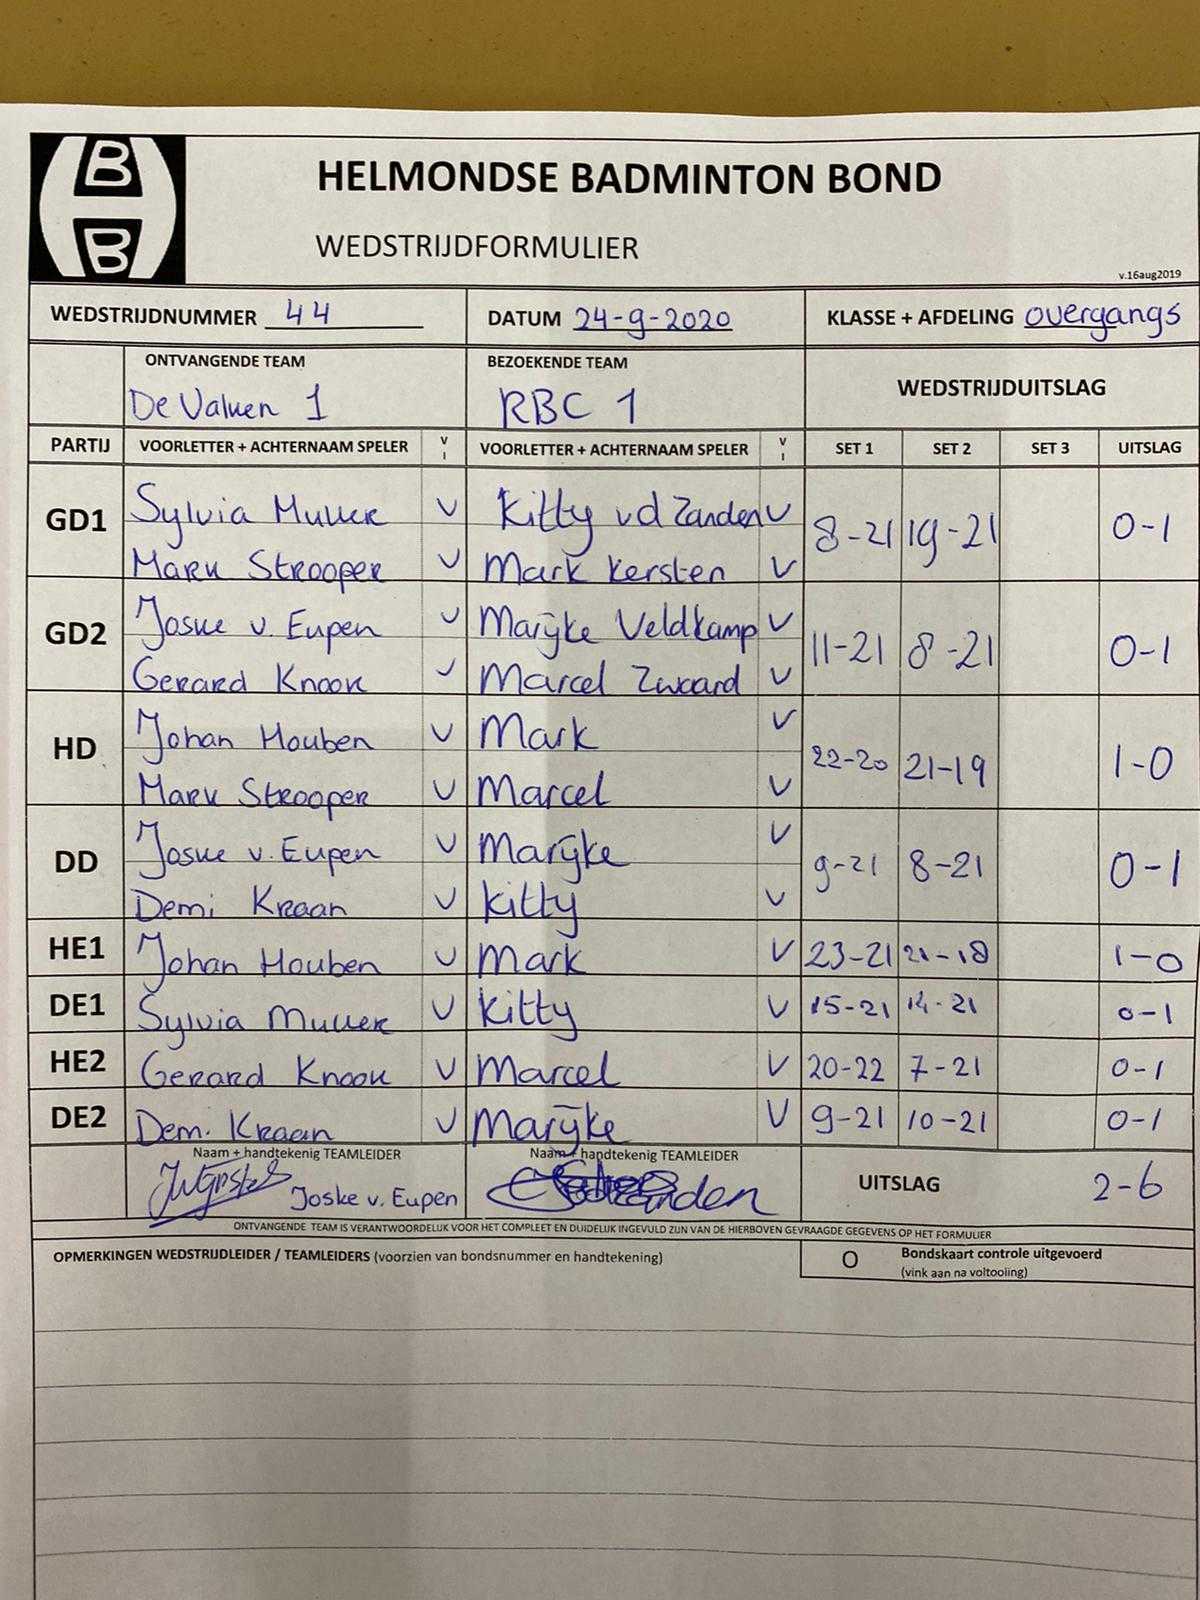 B
B
HELMONDSE BADMINTON BOND
WEDSTRIJDFORMULIER
v.16aug2019
WEDSTRIJDNUMMER 44 DATUM 24-9-2020 KLASSE + AFDELING overgangs
ONTVANGENDE TEAM BEZOEKENDE TEAM WEDSTRIJDUITSLAG
De Valken 1 RBC 1
PARTIJ VOORLETTER + ACHTERNAAM SPELER V I VOORLETTER + ACHTERNAAM SPELER V I SET 1 SET 2 SET 3 UITSLAG
GD1 Sylvia Muller V Kitty vd Zanden V 8-21 19-21 0-1
Mark Strooper V Mark Kersten V
GD2 Joske v. Eupen V Marijke Veldkamp V 11-21 8-21 0-1
Gerard Knook V Marcel Zwaard V
HD Johan Houben V Mark V 22-20 21-19 1-0
Mark Strooper V Marcel V
DD Joske v. Eupen V Marijke V 9-21 8-21 0-1
Demi Kraan V Kitty V
HE1 Johan Houben V Mark V 23-21 21-18 1-0
DE1 Sylvia Muller V Kitty V 15-21 14-21 0-1
HE2 Gerard Knook V Marcel V 20-22 7-21 0-1
DE2 Demi Kraan V Marijke V 9-21 10-21 0-1
Naam + handtekenig TEAMLEIDER Naam + handtekenig TEAMLEIDER
Joske v. Eupen UITSLAG 2-6
ONTVANGENDE TEAM IS VERANTWOORDELIJK VOOR HET COMPLEET EN DUIDELIJK INGEVULD ZIJN VAN DE HIERBOVEN GEVRAAGDE GEGEVENS OP HET FORMULIER
OPMERKINGEN WEDSTRIJDLEIDER / TEAMLEIDERS (voorzien van bondsnummer en handtekening) O Bondskaart controle uitgevoerd
(vink aan na voltooling)